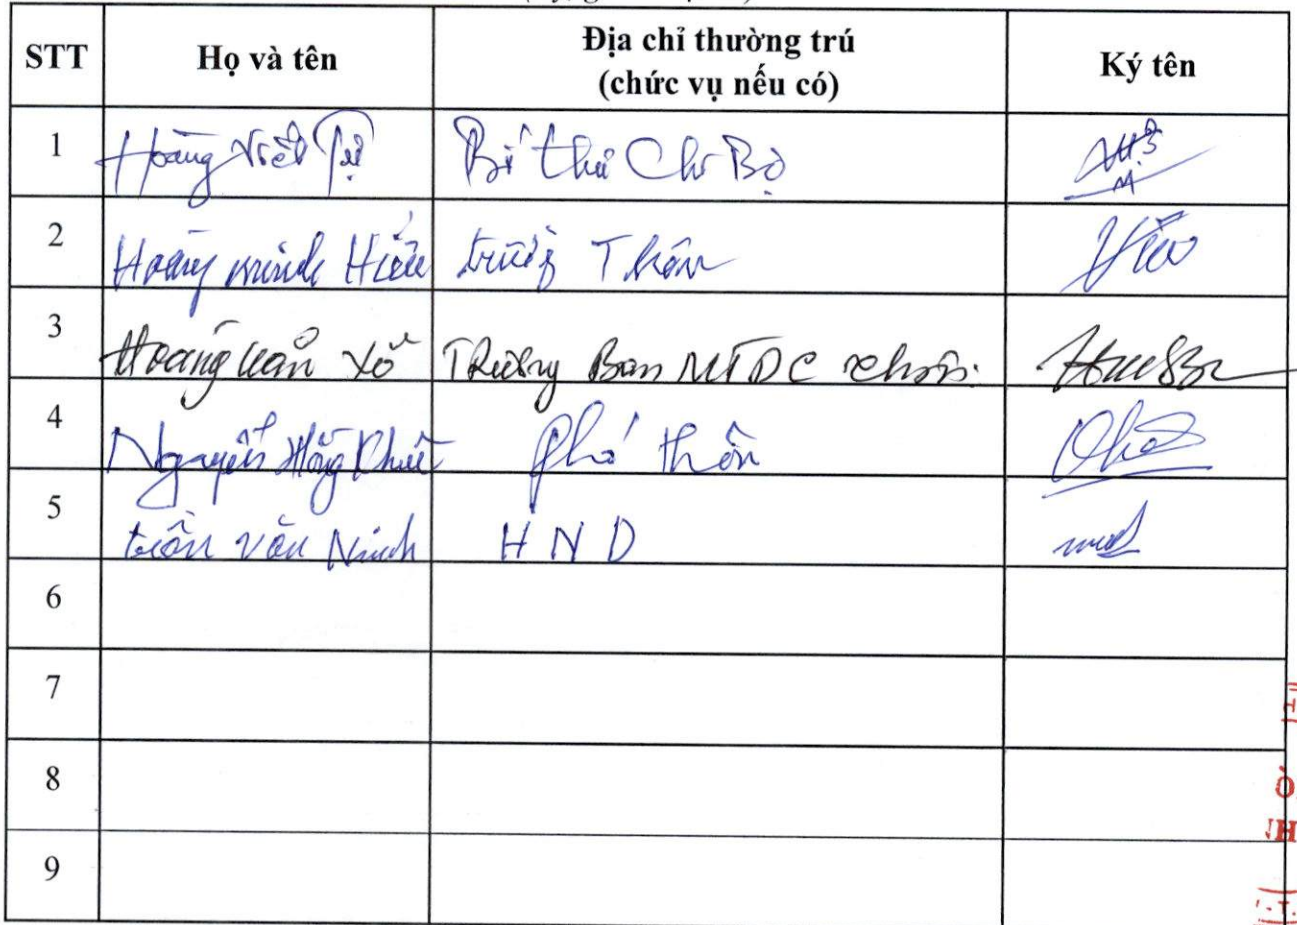 STT Họ và tên Địa chỉ thường trú Ký tên
(chức vụ nếu có)
1 Hoàng Viết Tự Bí thư Chi Bộ
2 Hoàng minh Hiếu trưởng Thôn
3 Hoàng văn Trưởng Ban MTDC thôn.
4 Nguyễn Hồng Phó thôn
5 trần văn Ninh HND
6
7
8
9